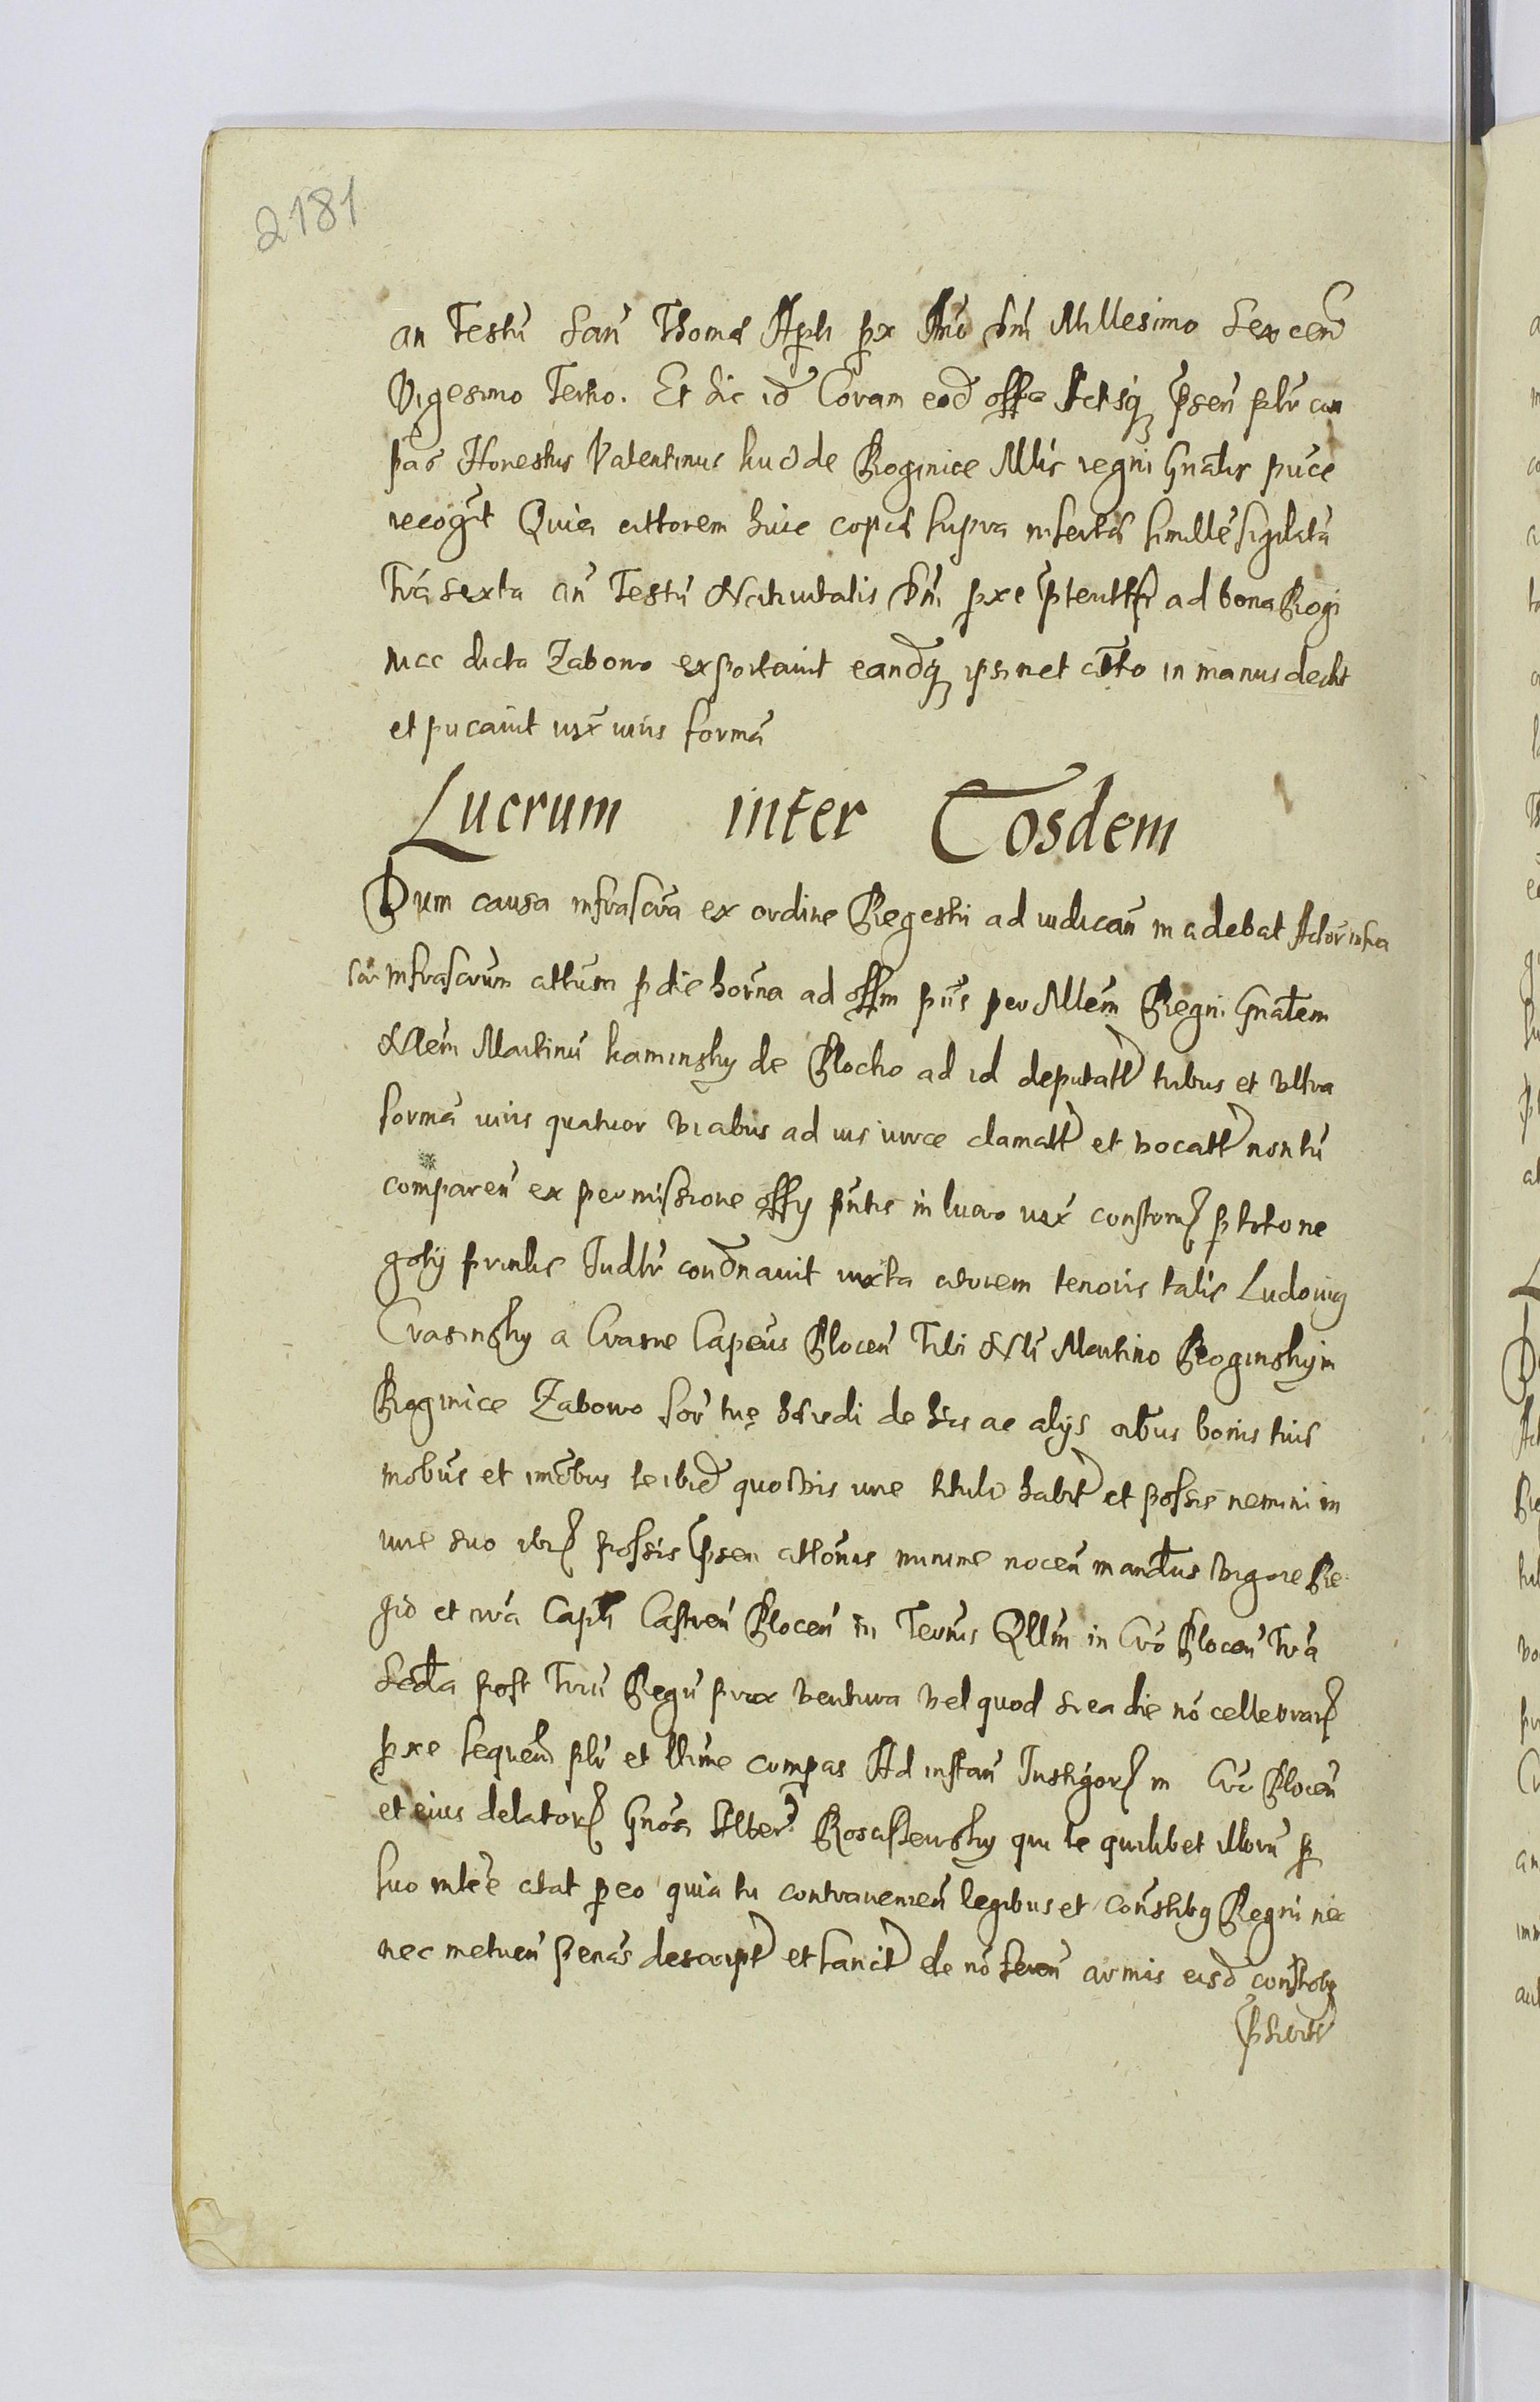 2181
an Festũ San̄ Thomæ Apłi px Año Dn̄i Millesimo Sexcen̄
Vigesimo Tertio. Et sic id Coram eod offo Actisq psen̄ plr̄ com
pãs Honestus Valentinus kud de Roginice Mlis regni Gñalis pu͞ce
recog͞t Quia cittõem huic copiæ supra insertæ similẽ sigilatã
fr̃a sexta an̄ Festũ Nativitatis Dn̄i pxe pteritt ad bona Rogi
nice dicta Zabowo exportavit eandq ipsimet citto in manus dedit
et pu͞cavit iux̃ iuris formã
Lucrum inter Eosdem
Dum causa infrascr̃a ex ordine Regestri ad iudican̄ incadebat Actor infra
scr̄ infrascrum cittum p die hor̄na ad offm pn̄s per Mlem̄ Regni Gñalem
Nlem̄ Martinũ kaminsky de Plocko ad id deputatt tribus et ultra
formã iuris quatuor vicabus ad ius iur͞ce clamatt et vocatt non tũ
comparen̄ ex permissione offy pn̄tis in lucro iux̃ constõnẽ p toto ne
gotÿ prin͞lis Iudlr̄ condnavit iuxta citõem tenoris talis Ludovicg
Crasinsky a Crasne Capneus Plocen̄ Tibi Nli Martino Roginsky in
Roginice Zabowo sor̄ tuę hæredi de his ac alijs o͞ibus bonis tuis
mobus et im͞obus te ibid quovis iure titulo habit et possis nemini in
iure suo ibi possis psen cittõnis minime nocen̄ mandamus vigore Re
gio et n͞ra Capli Castren̄ Plocen̄ in Termis Qllm in Cro Plocen̄ fr̃a
Secda post Trium Regũ prox ventura vel quod si ea die nõ cellebrar
pxe sequen̄ plr̄ et ll͞ime compas Ad instan̄ Instigor in Cro Plocen̄
et eius delator Gñosi Alber Rosciszewsky qui te quilibet illorũ p
suo int͞ee citat p eo quia tu contravenien̄ legibus et cons͞tibg Regni nec
nec metuen̄ penas descript et sancit de nõ feren̄ armis eisd constõbg
pscript